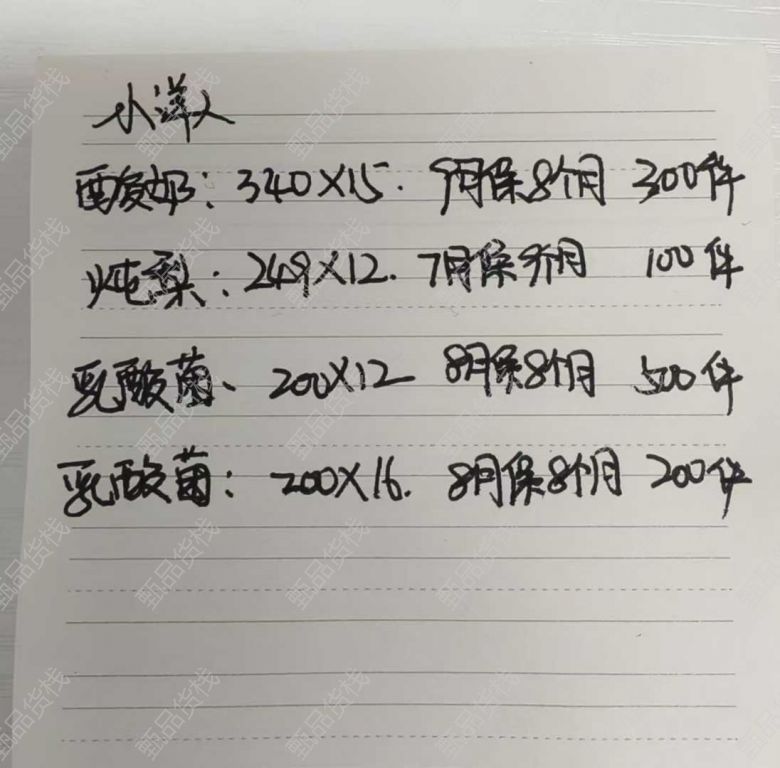 小洋人
酉发奶：340X15. 9月保8个月 300件
炖梨：249X12. 7月保9个月 100件
乳酸菌、 200X12 8月保8个月 500件
乳酸菌： 200X16. 8月保8个月 200件
甄品货栈